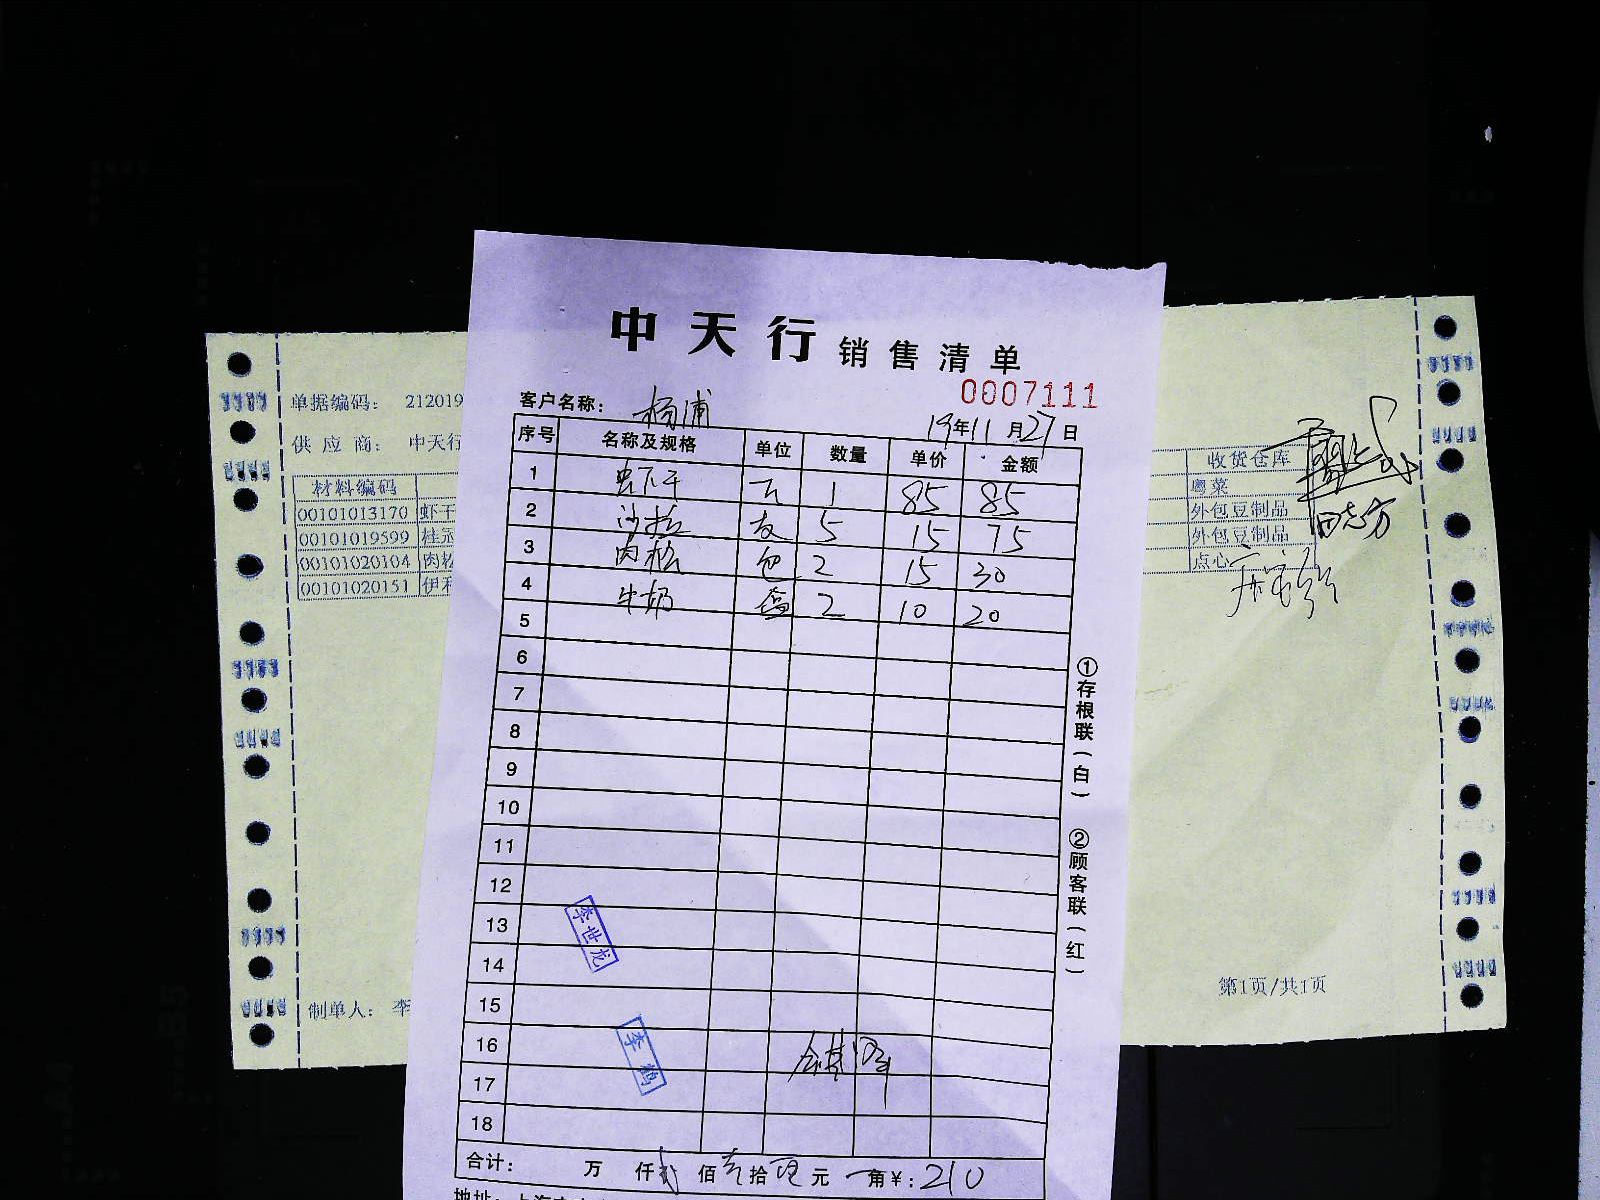 中天行 销售清单
0007111
客户名称： 杨浦
19年11月27日
序号 名称及规格 单位 数量 单价 金额
1 虾干 斤 1 85 85
2 沙拉 支 5 15 75
3 肉松 包 2 15 30
4 牛奶 盒 2 10 20
5
6
7
8
9
10
11
12
13
14
15
16
17
18
李世龙
李鹤
合计： 万 仟 贰佰 壹拾 零元 角￥：210
①存根联（白） ②顾客联（红）
单据编码： 212019
供应商： 中天行
材料编码
00101013170 虾干
00101019599 桂冠
00101020104 肉松
00101020151 伊利
制单人： 李
收货仓库
粤菜
外包豆制品
外包豆制品
点心
第1页/共1页